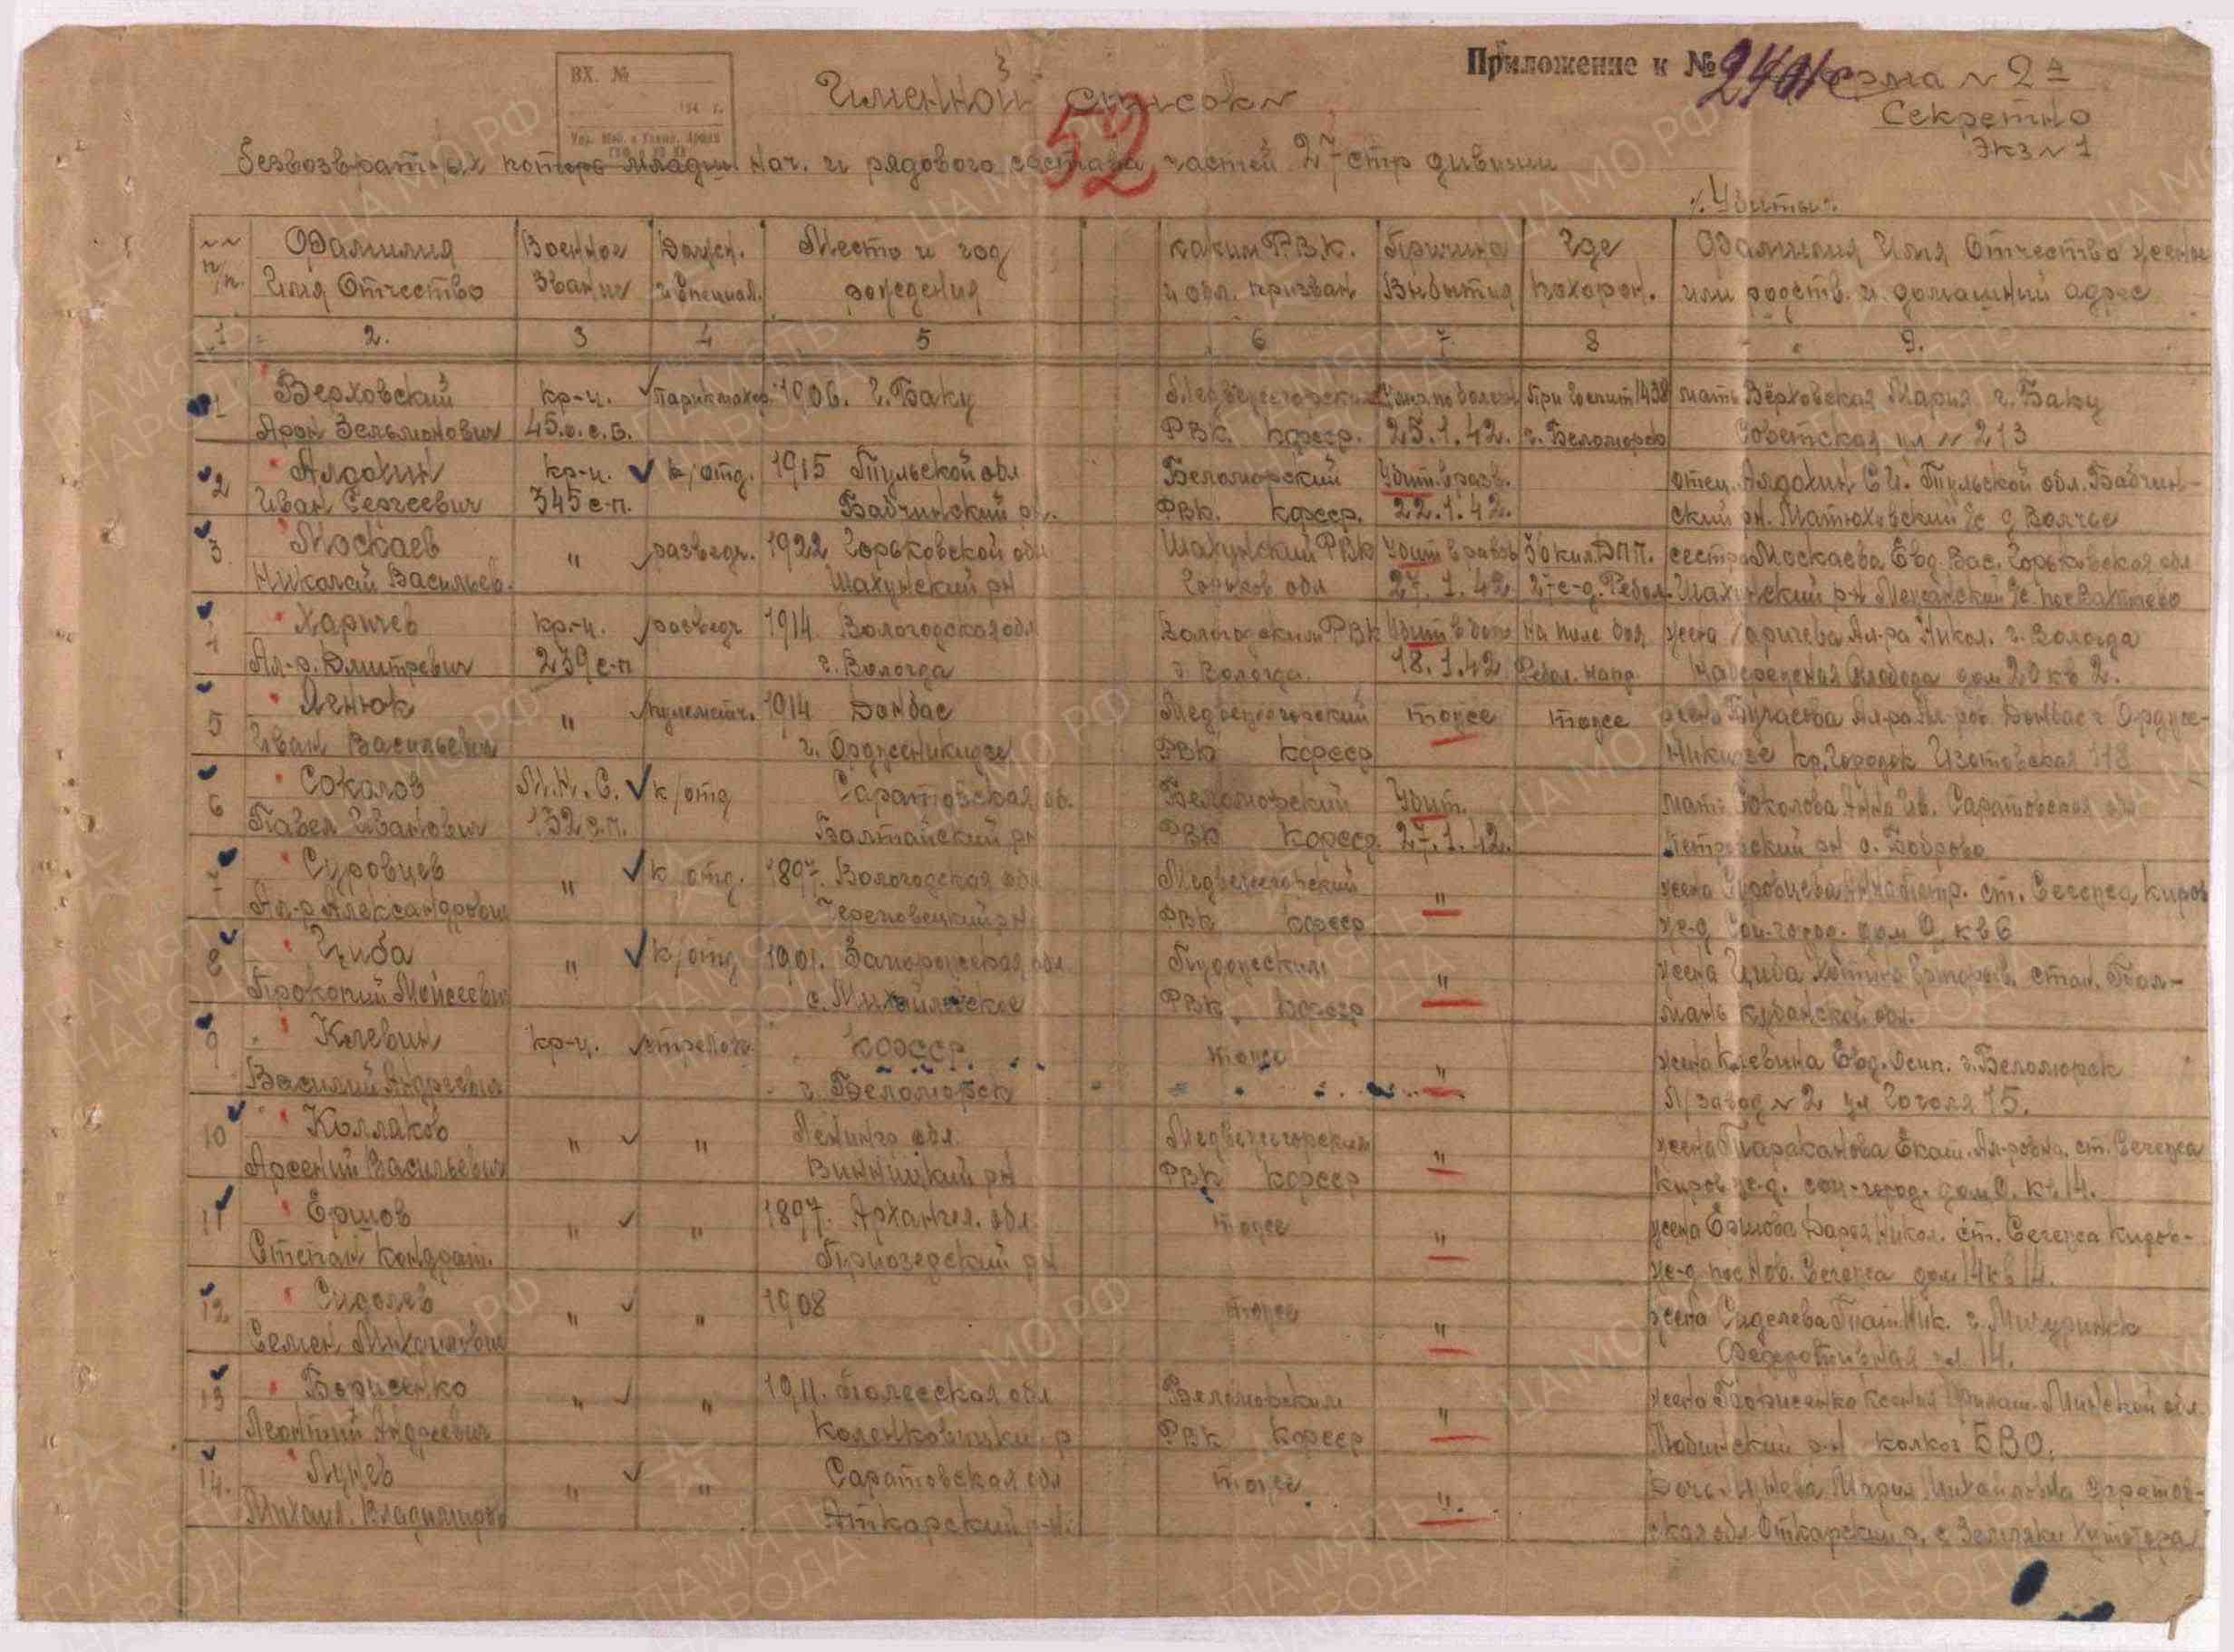 Приложение к № 2401с Форма № 2а
Секретно
Экз № 1
ВХ. №
194 г.
3
Именной список
52
безвозвратных потерь младш. нач. и рядового состава частей 27 стр дивизии
Убиты
№№ п/п. Фамилия Имя Отчество Военное звание Должн. и специал. Место и год рождения каким Р.В.К. и обл. призван Причина выбытия Где похорон. Фамилия Имя Отчество жены или родств. и домашний адрес
1 2. 3 4 5 6 7 8 9.
1 Верховский кр-ц. парикмахер 1906. г. Баку Медвежегорским умер по болезн При госпит 1438 мать Верховская Мария г. Баку
Арон Зельмонович 45.о.с.б. РВК кфсср. 25.1.42. г. Беломорск Советская ул № 213
2 Алдохин кр-ц. к/отд. 1915 Тульской обл Беломорский Убит в разв. отец Алдохин С.И. Тульской обл.
Иван Сергеевич 345 с-п. РВК. кфсср. 22.1.42. ский рн. Матюховский с/с д Волчье
3 Москаев " разведч. 1922 Горьковской обл Шахунский РВК Убит в разв 30 кил. ДПП. сестра Москаева Евд. Вас. Горьковская обл
Николай Васильев. Шахунский рн Горьков обл 27.1.42 27 с-д. Ребол. Шахунский р-н
4 Харичев кр-ц. разведч 1914 Вологодская обл Вологодским РВК Убит в бою На поле боя жена Харичева Ал-ра Никол. г. Вологда
Ал-р. Дмитревич 239 с-п г. Вологда г. Вологда 18.1.42 Ребол. напр. дом 20 кв 2.
5 Ягнюк " пулеметч. 1914 Донбас Медвежегорский тоже тоже жена
Иван Васильевич г. Орджоникидзе РВК кфсср никидзе кр. Городок Изотовская 118
6 Соколов М.Н.С. к/отд Саратовская об. Беломорский Убит. мать Соколова Анна Ив. Саратовская обл
Павел Иванович 132 с.п. Балтайский рн РВК кфсср. 27.1.42. Петровский рн с. Боброво
7 Суровцев " к отд. 1897. Вологодская обл Медвежегорский " жена Суровцева ст. Сегежа, Киров
Ал-р Александрович Череповецкий рн РВК кфсср ж-д Соц-город. дом 0, кв 6
8 Циба " к/отд 1901. Запорожская обл. Пудожским " жена Циба
Прокопий Мойсеевич с. Михайловское РВК кфсср мань кубанской обл.
9 Клевин кр-ц. стрелок. КФССР. тоже " жена Клевина Евд. Осип. г. Беломорск
Василий Андреевич г. Беломорск Л/завод № 2 ул Гоголя 15.
10 Коллаков " " Ленингр обл. Медвежегорским " жена Тараканова Екат. Ал-ровна, ст. Сегежа
Арсений Васильевич Винницкий рн РВК кфсср киров ж-д. соц-город. дом 0. кв 14.
11 Ершов " " 1897. Архангел. обл. тоже " жена Ершова Дарья Никол. ст. Сегежа Киров-
Степан Кондрат. Приозерский рн ж-д пос Нов. Сегежа дом 14 кв 14.
12. Сиделев " " 1908 тоже " жена Сиделева Ник. г. Мичуринск
Семен Михайлович ул 14.
13 Борисенко " " 1911. Полесская обл Беломорским " жена Борисенко Ксения Минской обл.
Леонтий Андреевич РВК кфсср колхоз БВО.
14. Лунев " " Саратовская обл тоже " Дочь Лунева Мария Михайловна Саратов-
Михаил. Владимиров Аткарский р-н ская обл Откарский р. с Земляные Хутора